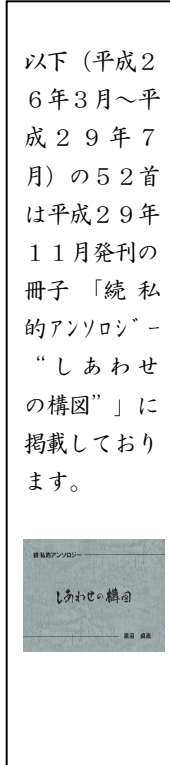 以下（平成２
６年３月～平
成２９年７
月）の５２首
は平成２９年
１１月発刊の
冊子 「続 私
的ｱﾝｿﾛｼﾞｰ
“しあわせ
の構図”」に
掲載しており
ます。
続 私的アンソロジー
しあわせの構図